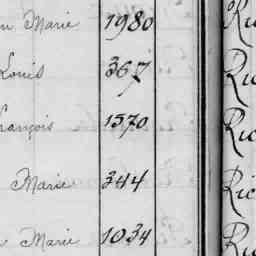 Marie 1980 Ric
Louis 367 Ric
François 1570 Ric
Marie 344 Ric
Marie 1034 Ric